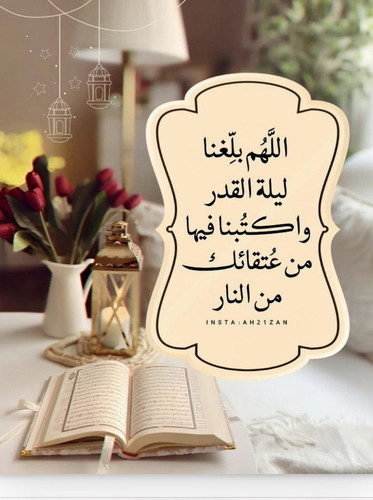 اللَّهُم بلِّغنا
ليلة القدر
واكتُبنا فيها
من عُتقائك
من النار
INSTA:AH21ZAN